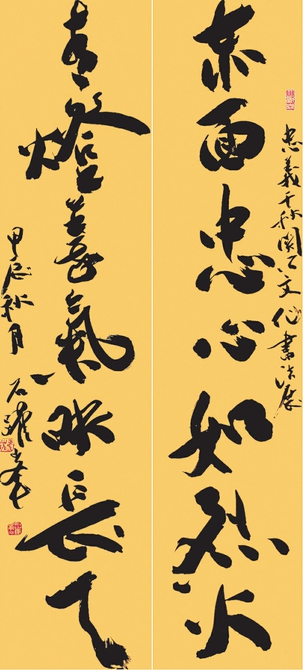 忠義千秋關公文化書法展
赤面忠心如烈火
青燈善氣映長天
甲辰秋月 石